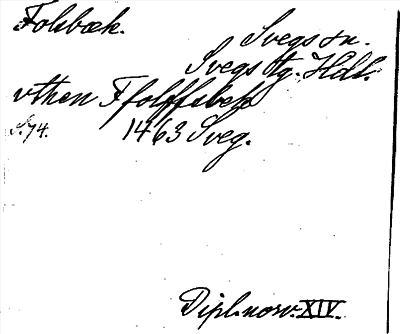 Folsbæk.
Svegs sn.
Svegs tg. Hdl.
vthen Ffolffsbek
S. 74. 1463 Sveg.
Dipl. norv. XIV.